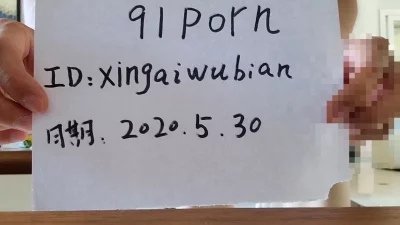 91porn
ID:xingaiwubian
日期:2020.5.30